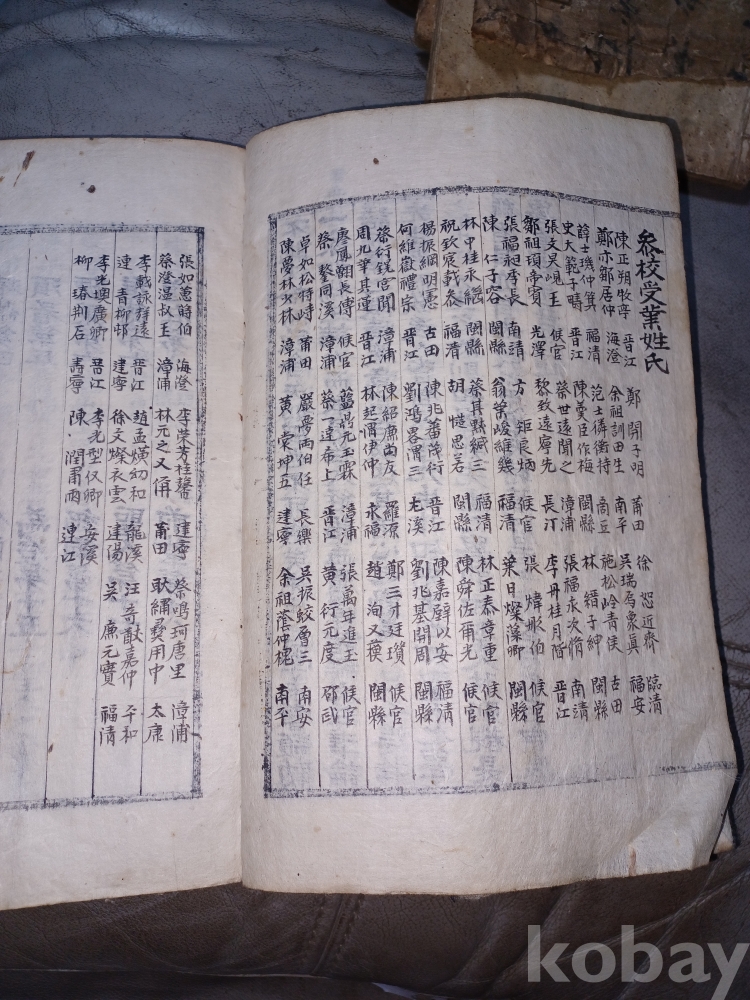 參校受業姓氏
陳正朔牧亭 晉江 鄭開子明 莆田 徐恕近齋 臨清
鄭亦鄒居仲 海澄 余祖訓田生 南平 吳瑞馬衆眞 福安
薛士璣仲箕 福清 范士衡持 商丘 施松齡青侯 古田
史大範子疇 晉江 陳夢臣作梅 閩縣 林縉子紳 閩縣
張文炅峴王 候官 蔡世遠聞之 漳浦 張福永次脩 南靖
鄒祖頊帝賓 光澤 黎致遠寧先 長汀 李丹桂月階 晉江
張福昶季長 南靖 方矩良炳 候官 張煒彤伯 候官
陳仁子容 閩縣 翁榮峻維幾 福清 葉日燦藻卿 候官
林中桂永繩 閩縣 蔡其默緘三 福清 林正泰章重 候官
祝欽宸載泰 福清 胡慥思若 閩縣 陳舜佐爾光 候官
楊振綱明憲 古田 陳兆蕃茂衍 晉江 陳嘉辟以安 福清
何維嶽禮宗 晉江 劉鴻畧渭三 尤溪 劉兆基開周 閩縣
蔡衍鎤宮聞 漳浦 陳紹廉尚友 羅源 鄭三才廷瓚 候官
周九華其蓮 晉江 林起渭伊仲 永福 趙洵又模 閩縣
廖鳳翱長傅 候官 藍鼎元玉霖 漳浦 張萬年進玉 候官
蔡同溪 漳浦 蔡一達希上 晉江 黃衍元度 邵武
卓如松特峙 莆田 嚴夢兩伯任 長樂 吳振蛟層三 南安
陳夢林少林 漳浦 黃坤五 建寧 余祖蔭仲 南平
張如蕙蒔伯 海澄 李榮芳桂馨 建寧 蔡鳴珂唐里 漳浦
蔡澄溫叔王 漳浦 林元之又倂 莆田 耿繡彛用中 太康
李載詠群遠 晉江 趙孟熯幼和 龍溪 汪奇猷嘉仲 平和
連青柳邨 建寧 徐文燦衣雲 建陽 吳廉元實 福清
李光墺廣卿 晉江 李光型仪卿 安溪
柳瑃荆石 壽寧 陳潤肅雨 連江
kobay